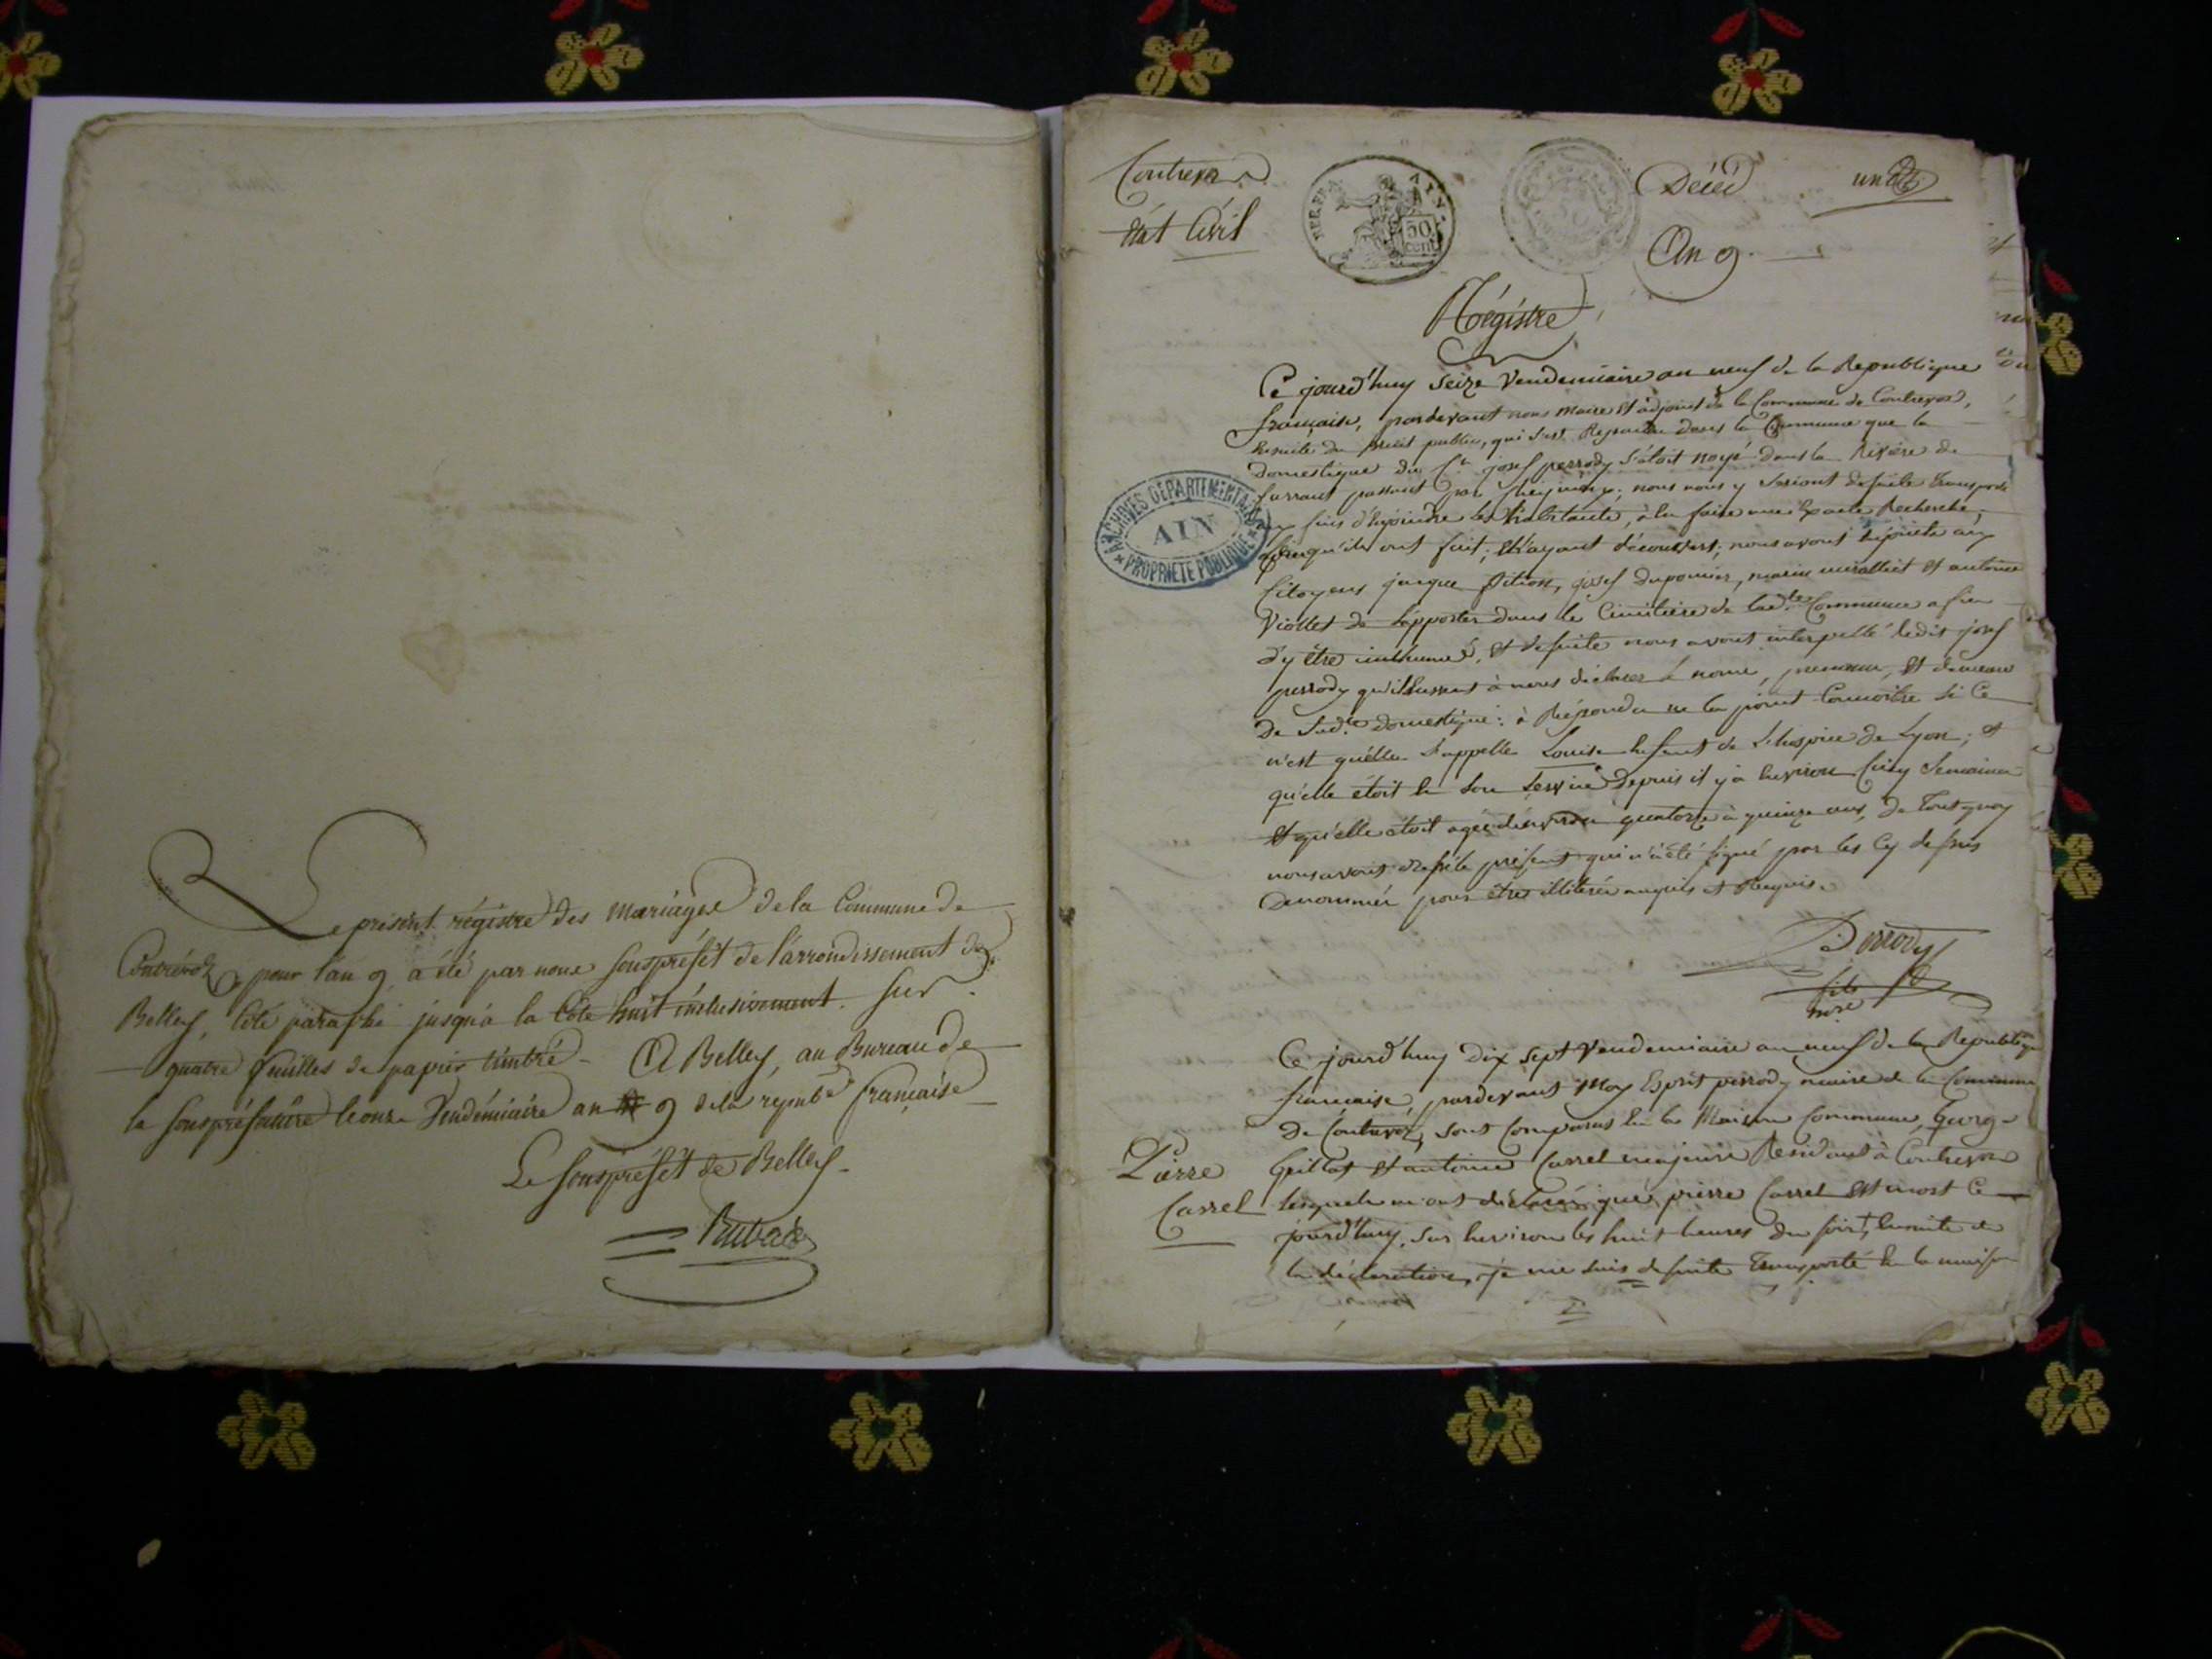 Le présent régistre des mariages de la Commune de
Contrévoz, pour l'an 9, a été par nous souspréfét de l'arrondissement de
Belley, côté paraphé jusqu'à la Côte huit inclusivement. Sur
quatre feuilles de papier timbré - A Belley, au Bureau de
la souspréfecture le onze Vendémiaire an 9 de la répub.e française
Le souspréfét de Belley.
Contrevoz
état Civil
REP. FRA. AIN.
50
cent
Décéd
un
An 9.
Régistre
Ce jourd'huy seize Vendemiaire an neuf de la Republique
française, pardevant nous maire et adjoint de la Commune de Contrevoz,
ensuite du bruit public, qui s'est Repandu dans la Commune que la
domestique du C.n josef perrody s'étoit noyé dans la Rivière de
furrant passant par ; nous nous y seriont desuite transporté
fins d'injoindre les habitants, à en faire une Exacte Recherche,
qu'ils ont fait, et l'ayant découvert, nous avont injointe aux
Citoyens jacque pition, josef duponier, marin et antoine
Viollet de l'apporter dans le Cimitière de lad.te Commune afin
d'y être inhumé, et desuite nous avont interpellé ledit josef
perrody qu'il eussent à nous déclarer le nome, prenome, et demeure
de sad.te domestique: à Répondu ne la point Connoitre si Ce
n'est qu'elle s'appelle Louise Enfant de l'hospice de Lyon; et
qu'elle étoit En son service depuis il y à Environ Cinq semaines
et qu'elle étoit agée d'environ quatorze à quinze ans, de tout quoy
nous avons dressé le présent qui n'a été signé par les Cy dessus
denommés pour être illiteré enquis et Requis.
Perrody
ARCHIVES DEPARTEMENTALES
AIN
PROPRIETE PUBLIQUE
Ce jourd'huy dix sept Vendemiaire an neuf de la Republique
francaise, pardevant Moy Esprit perrody maire de la Commune
de Contrevoz, sont Comparus En la Maison Commune, George
Pierre
Guillot et antoine Carrel majeurs Residant à Contrevoz
Carrel
lesquels m'ont déclarés que pierre Carrel est mort Ce
jourd'huy, sur Environ les huit heures du soir, Ensuite de
la déclaration, je me suis desuite transporté En la maison